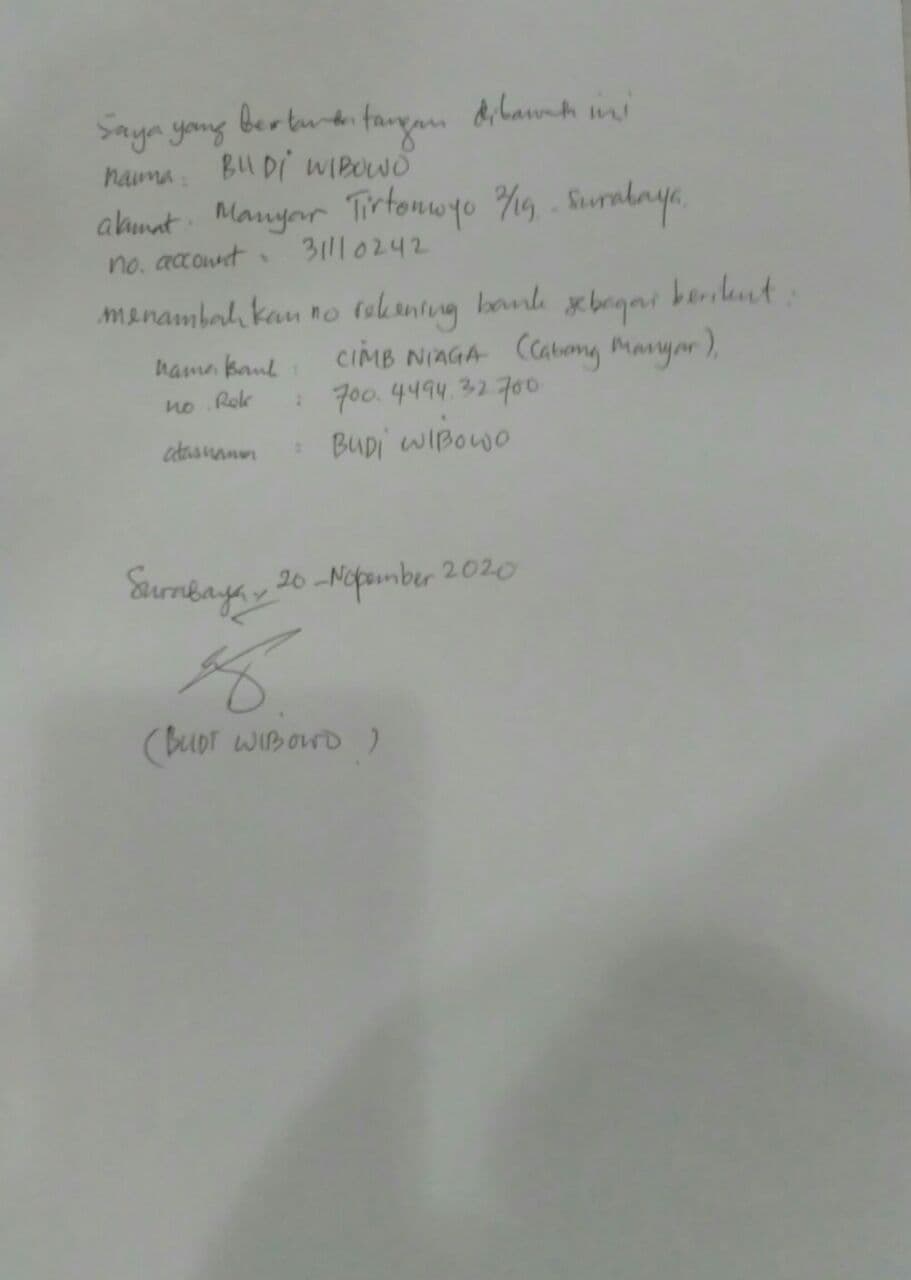 Saya yang bertandatangan dibawah ini
nama : BUDI WIBOWO
alamat : Manyar Tirtomoyo 2/19 - Surabaya.
no. account : 31110242
menambahkan no rekening bank sebagai berikut :
nama Bank : CIMB NIAGA (Cabang Manyar),
no. Rek : 700.4494.32.700
atasnama : BUDI WIBOWO
Surabaya, 20-Nopember 2020
(BUDI WIBOWO)